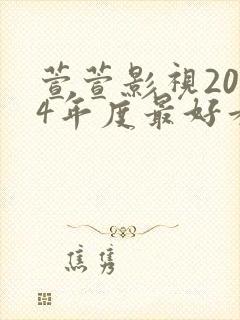 萱萱影視20
4年度最好
焦隽